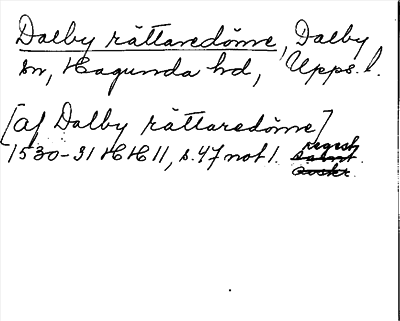 Dalby rättaredöme, Dalby
sn, Hagunda hd, Upps. l.
[af Dalby rättaredöme]
1530-31 HH 11, s. 47 not 1. regest